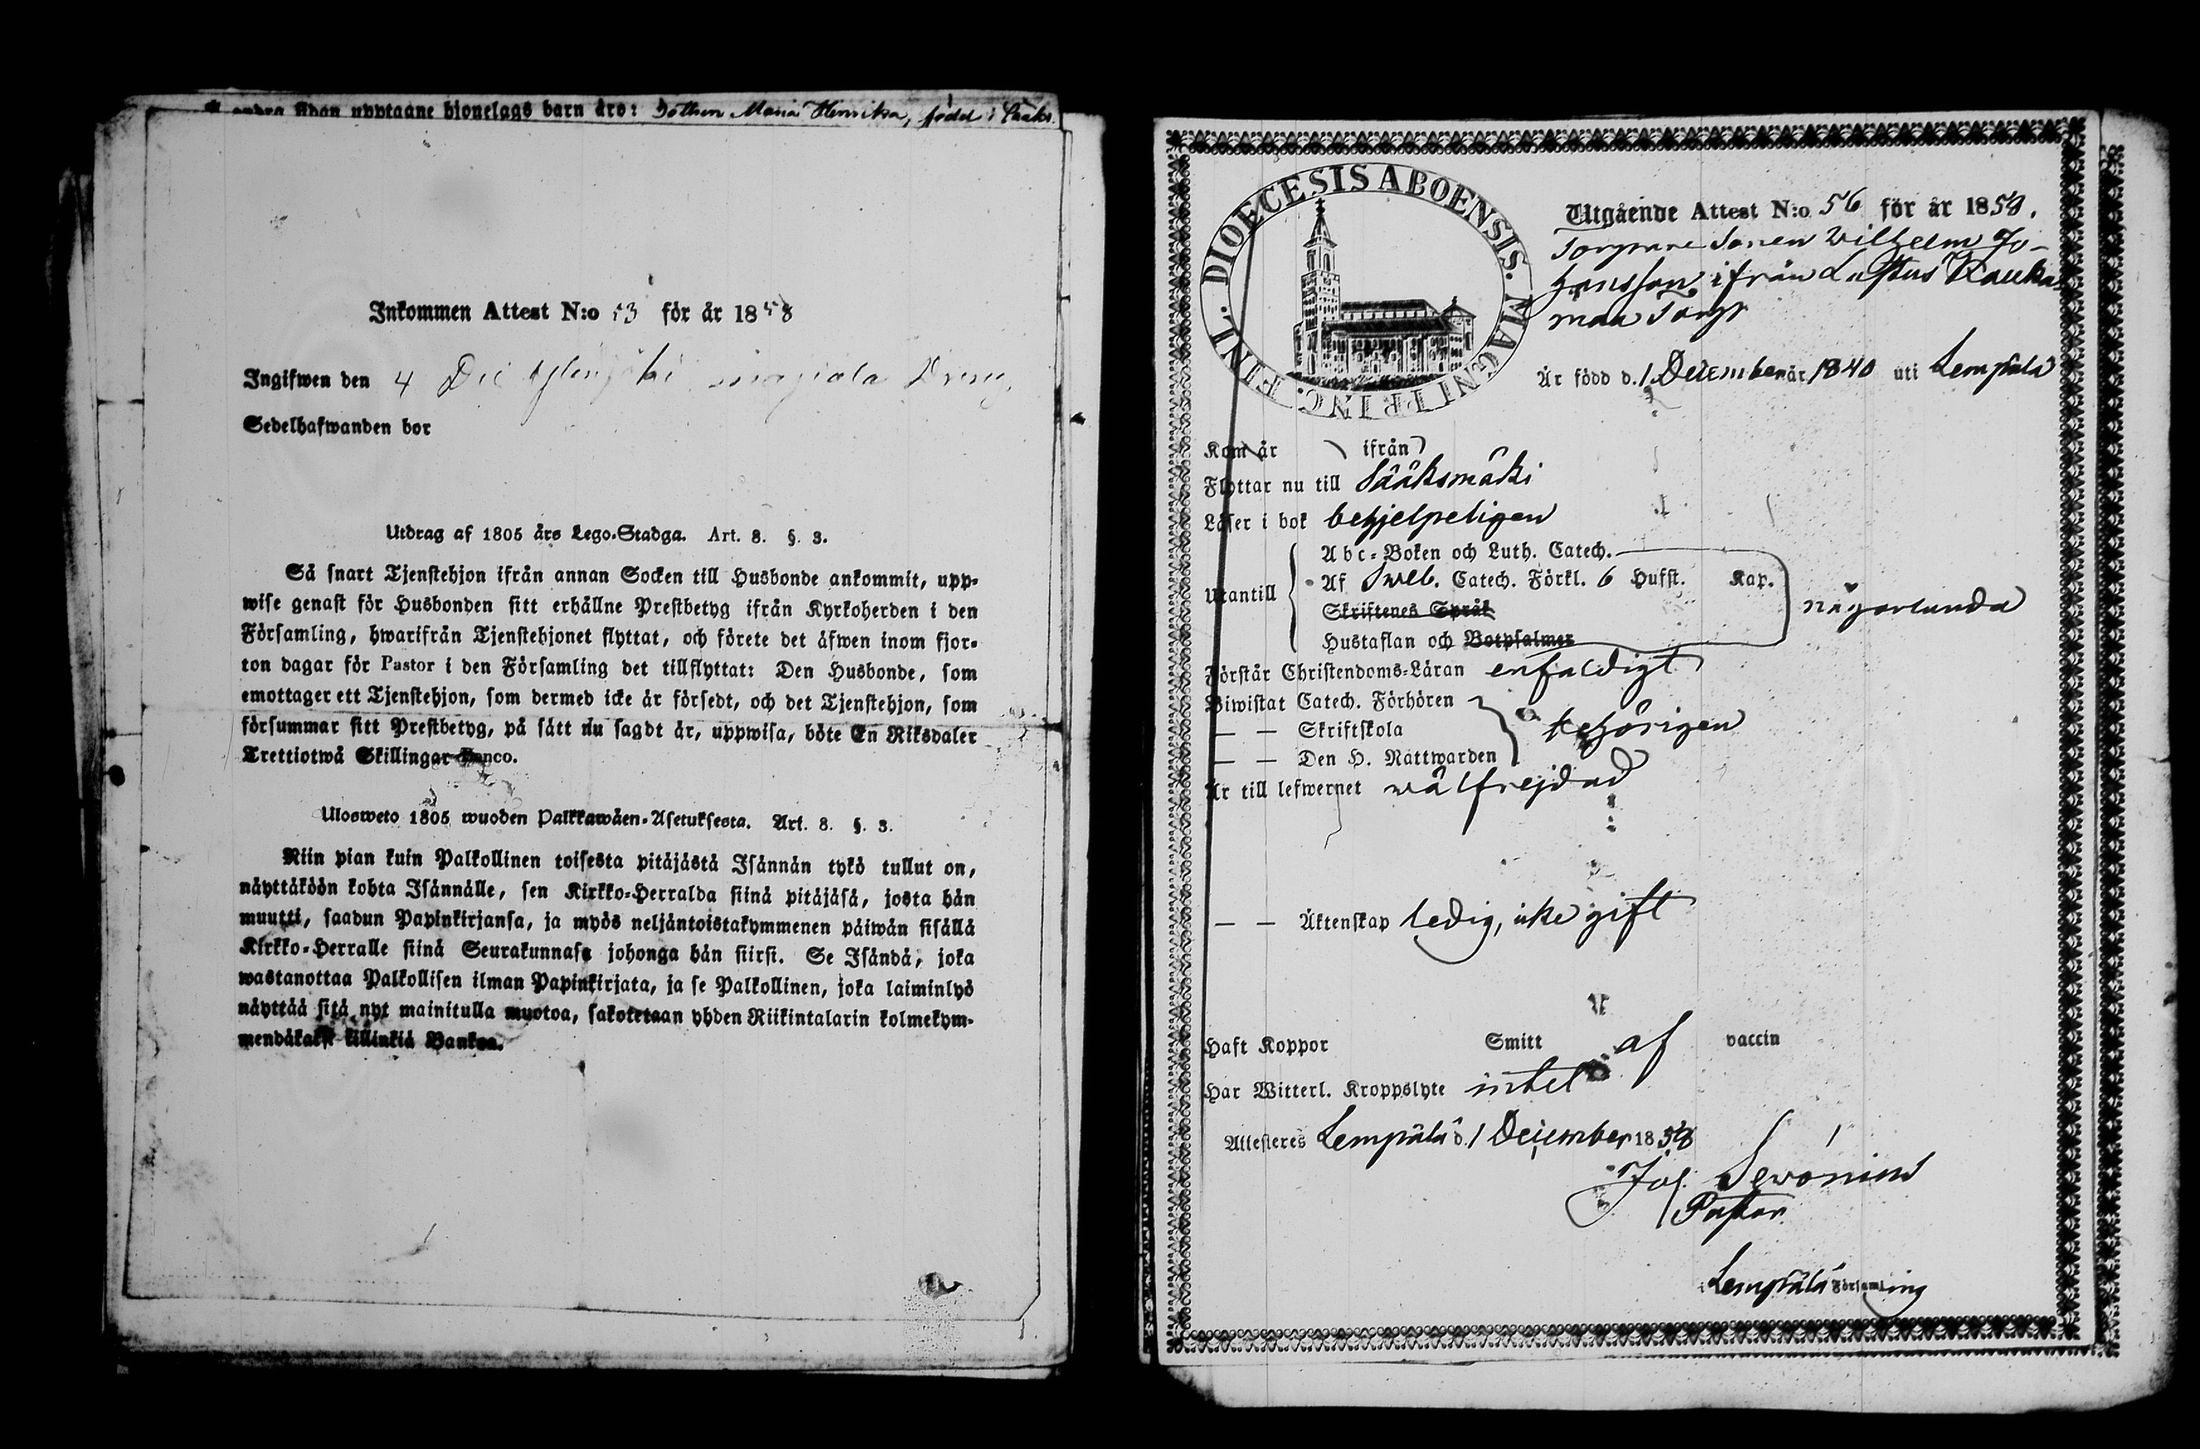 andra ådan upptagne hjonelags barn äro: Dottren Maria Henrika, född i Sääks.
Inkommen Attest N:o 53 för år 1858
Ingifwen den 4 Dec
Sedelhafwanden bor
Utdrag af 1805 års Lego-Stadga. Art. 8. §. 3.
Så snart Tjenstehjon ifrån annan Socken till Husbonde ankommit, upp-
wise genast för Husbonden sitt erhållne Prestbetyg ifrån Kyrkoherden i den
Församling, hwarifrån Tjenstehjonet flyttat, och förete det äfwen inom fjor-
ton dagar för Pastor i den Församling det tillflyttat: Den Husbonde, som
emottager ett Tjenstehjon, som dermed icke är försedt, och det Tjenstehjon, som
försummar sitt Prestbetyg, på sätt nu sagdt är, uppwisa, böte En Riksdaler
Trettiotwå Skillingar Banco.
Ulosweto 1805 wuoden Palkkawäen-Asetuksesta. Art. 8. §. 3.
Niin pian kuin Palkollinen toisesta pitäjästä Isännän tykö tullut on,
näyttäköön kohta Isännälle, sen Kirkko-Herralda siinä pitäjäsä, josta hän
muutti, saadun Papinkirjansa, ja myös neljäntoistakymmenen päiwän sisällä
Kirkko-Herralle siinä Seurakunnasa johonga hän siirsi. Se Isändä, joka
wastanottaa Palkollisen ilman Papinkirjata, ja se Palkollinen, joka laiminlyö
näyttää sitä nyt mainitulla muotoa, sakotetaan yhden Riikintalarin kolmekym-
mendäkaksi killinkiä Bankoa.
DIOECESIS ABOENSIS. MAGNI PRINC. FINL.
Utgående Attest N:o 56 för år 1858.
Torpare Sonen Wilhelm Jo-
hansson ifrån Lastus Rauka-
maa Torp
Är född d. 1 December år 1840 uti Lempälä
Kom år ifrån
Flyttar nu till Sääksmäki
Läser i bok behjelpeligen
Abc-Boken och Luth. Catech.
Utantill Af Sweb. Catech. Förkl. 6 Hufst. Kap. någorlunda
Skriftenes Språk
Hustaflan och Botpsalmer
Förstår Christendoms-Läran enfaldigt
Biwistat Catech. Förhören
— — Skriftskola behörigen
— — Den H. Nattwarden
Är till lefwernet wälfrejdad
— — Äktenskap ledig, icke gift
Haft Koppor Smitt af vaccin
Har Witterl. Kroppslyte intet
Attesteres Lempälä d. 1 December 1858
Joh. Sevonius
Pastor
Lempälä Församling